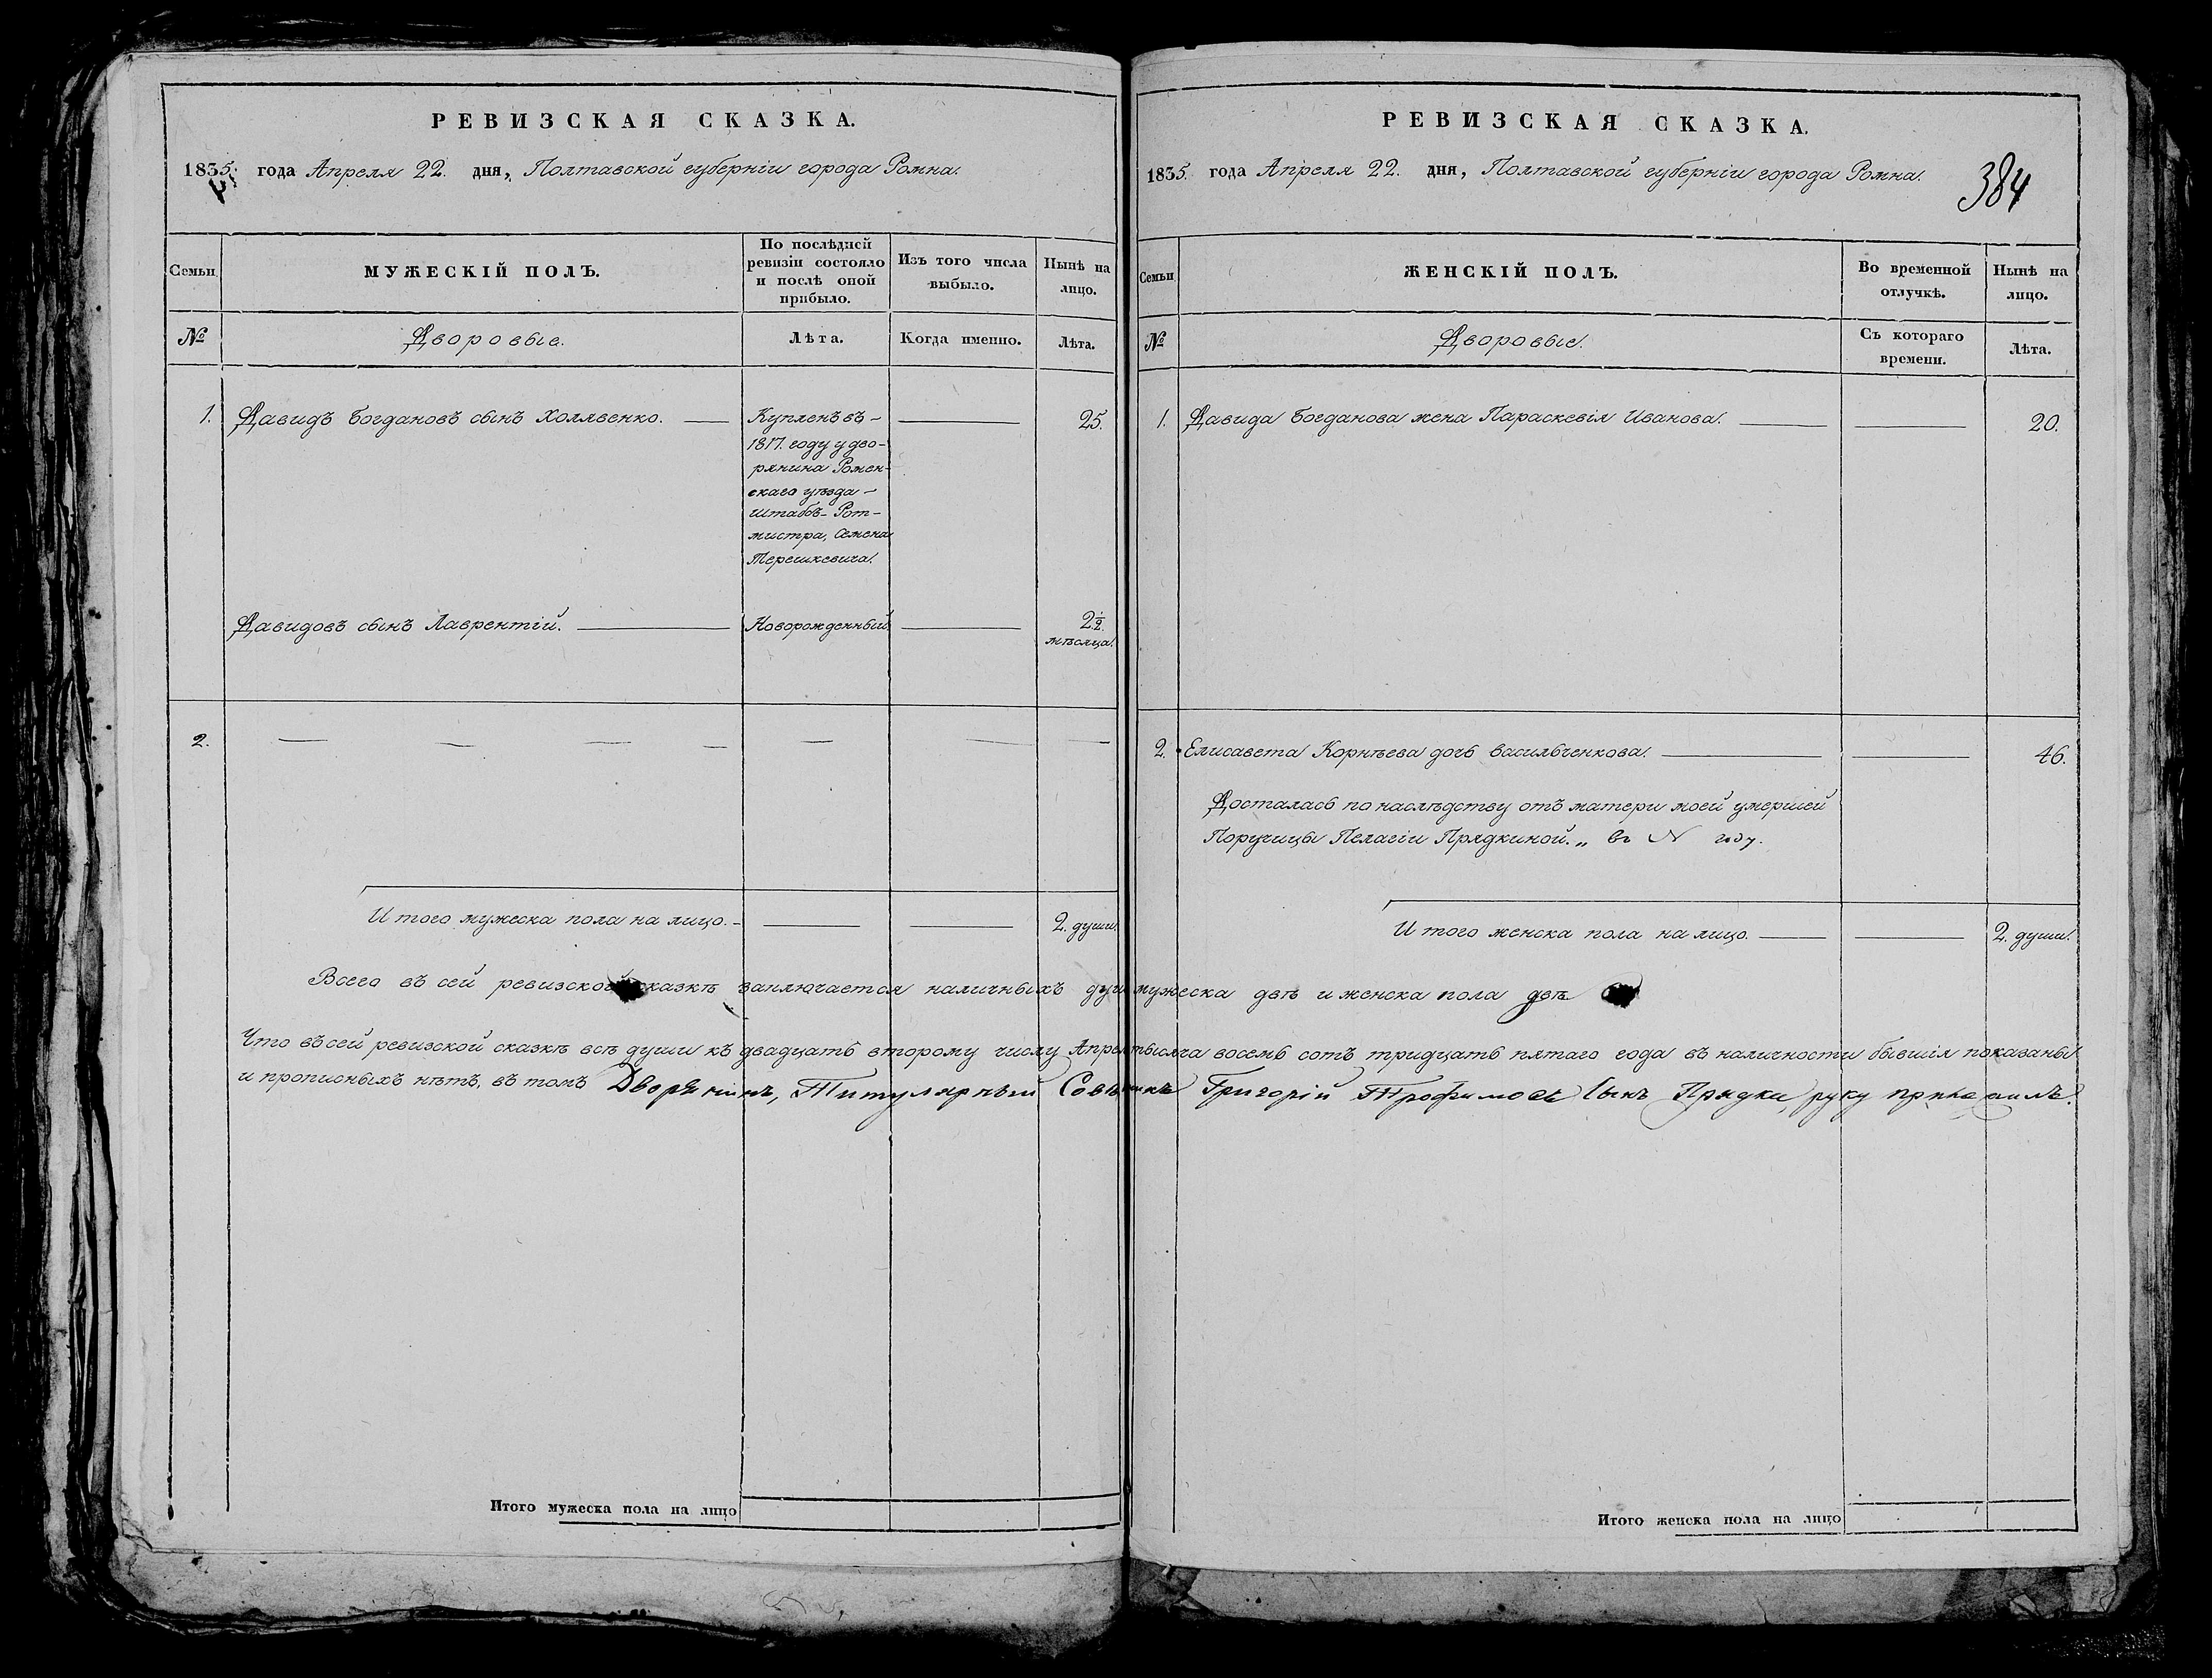 РЕВИЗСКАЯ СКАЗКА.
1835. года Апреля 22. дня, Полтавской губерніи города Ромна.
Семьи
МУЖЕСКІЙ ПОЛЪ.
По послѣдней
ревизіи состояло
и послѣ оной
прибыло.
Изъ того числа
выбыло.
Нынѣ на
лицо.
№
Дворовые.
Лѣта.
Когда именно.
Лѣта.
1. Давидъ Богдановъ сынъ Холявенко.
Купленъ въ
1817. году у дво-
рянина Ромен-
скаго уѣзда
Штабъ-Рот-
мистра, Семена
Терешкевича.
25.
Давидовъ сынъ Лаврентій.
Новорожденный
2 1/2.
мѣсяца.
2.
Итого мужеска пола на лицо.
2. души.
РЕВИЗСКАЯ СКАЗКА.
1835. года Апреля 22. дня, Полтавской губерніи города Ромна.
384
Семьи
ЖЕНСКІЙ ПОЛЪ.
Во временной
отлучкѣ.
Нынѣ на
лицо.
№
Дворовые.
Съ котораго
времени.
Лѣта.
1. Давида Богданова жена Параскевія Иванова. 20.
2. Елисавета Корнѣева дочь Васильченкова. 46.
Досталась по наслѣдству отъ матери моей умершей
Поручицы Пелагіи Прядкиной. „ въ году.
Итого женска пола на лицо. 2. души.
Всего въ сей ревизской сказкѣ заключается наличныхъ душъ мужеска двѣ и женска пола двѣ
Что въ сей ревизской сказкѣ всѣ души къ двадцать второму числу Апреля тысяча восемь сотъ тридцать пятаго года въ наличности бывшія показаны
и прописныхъ нѣтъ, въ томъ Дворянинъ, Титулярный Совѣтникъ Григорій Трофимовъ Сынъ Прядки, руку приложилъ.
Итого мужеска пола на лицо
Итого женска пола на лицо